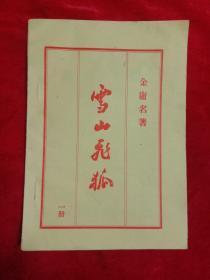 金庸名著
雪山飛狐
一册